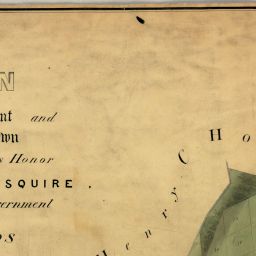 N
nt and
wn
s Honor
SQUIRE.
ernment
DS
Henry C Ho